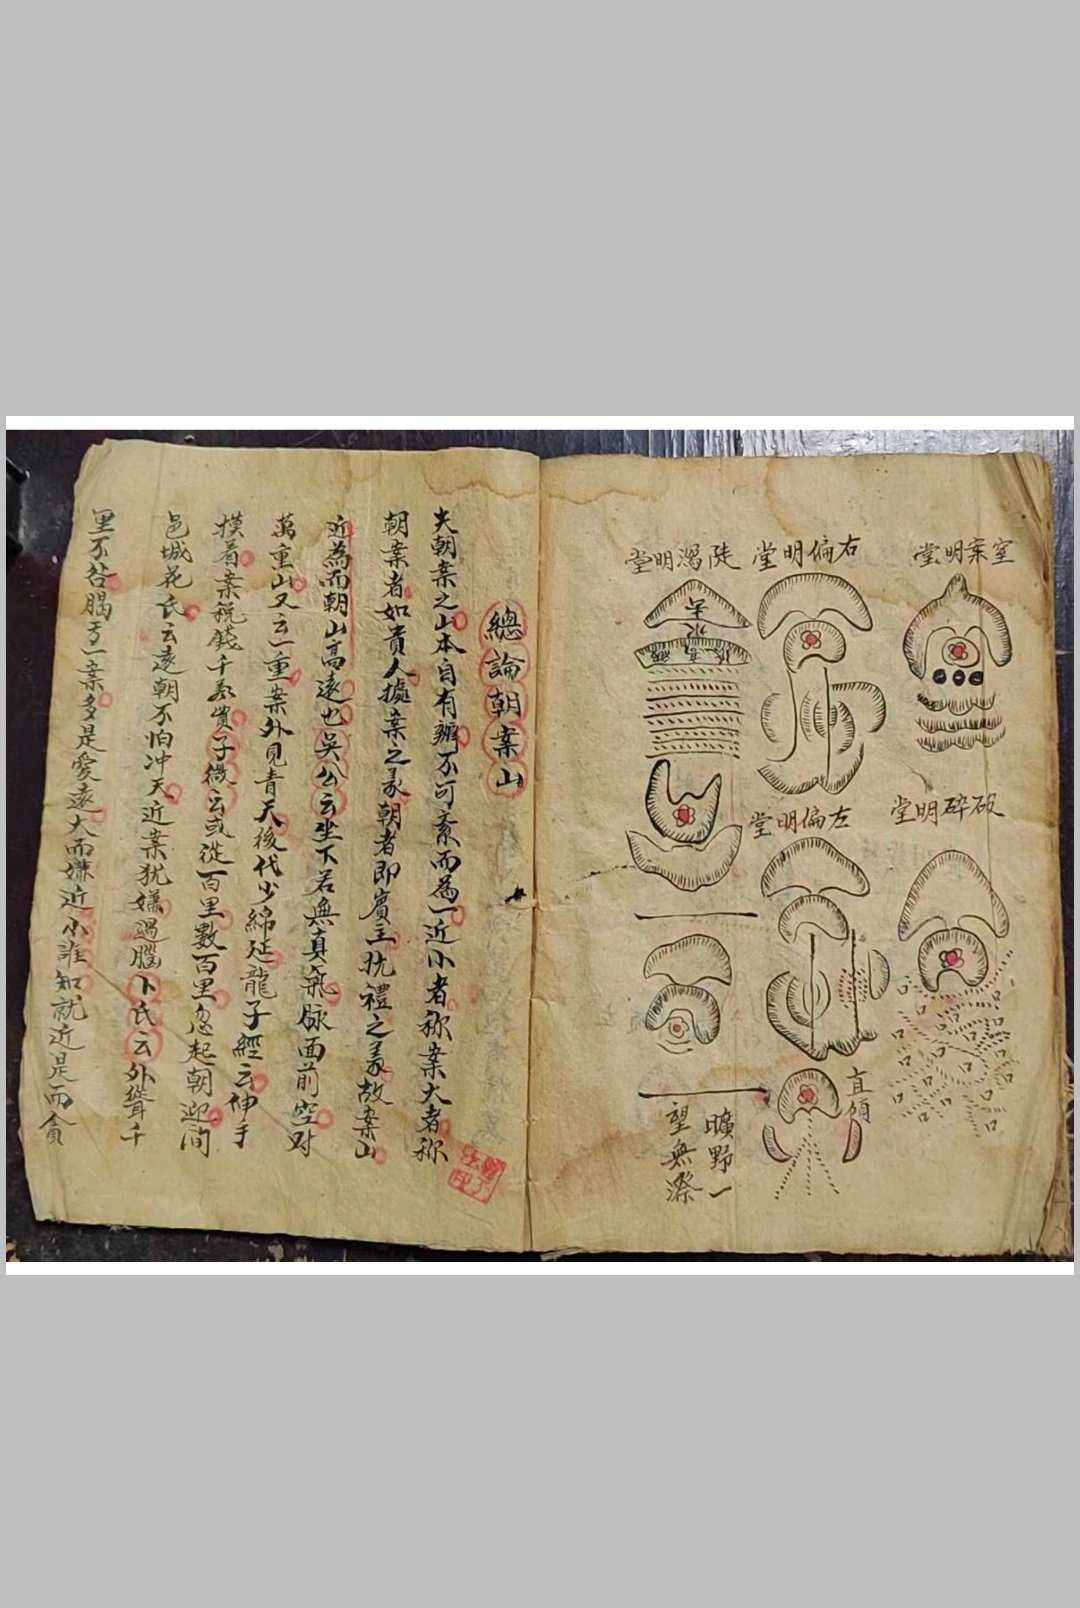 室案明堂
破碎明堂
右偏明堂
左偏明堂
直傾
陡瀉明堂
曠野一
望無際
總論朝案山
夫朝案之山本自有辨不可紊而為一近小者称案大者称
朝案者如貴人據案之义朝者即賓主抗禮之义故案山
近為而朝山高遠也吳公云坐下若無真氣脉面前空对
萬重山又云一重案外見青天後代少綿延龍子經云伸手
摸着案稅錢千万貫子微云或從百里數百里忽起朝迎問
邑城花氏云遠朝不怕冲天近案犹嫌逼腦卜氏云外聳千
里不若腦弓一案多是愛遠大而嫌近小誰知就近是而貪